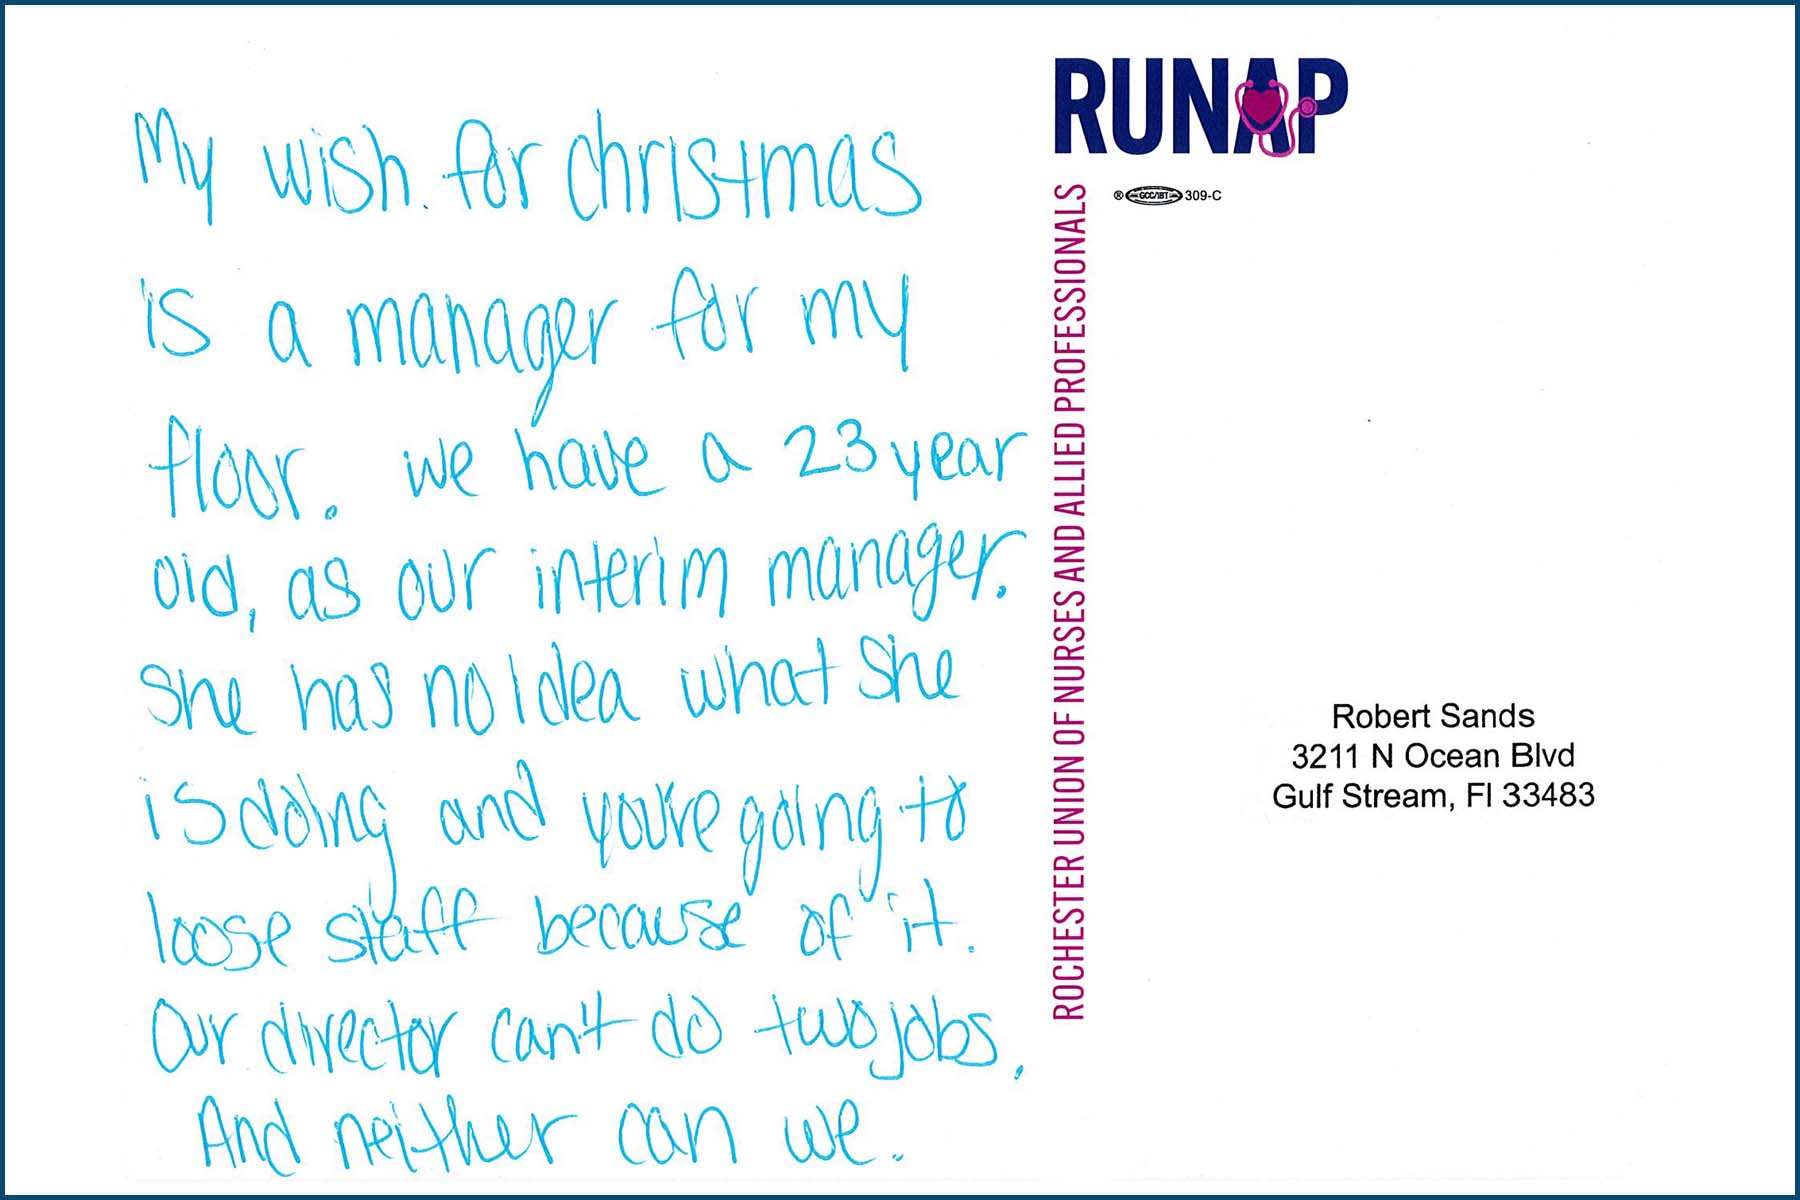 My wish for christmas
is a manager for my
floor. We have a 23 year
old, as our interim manager.
She has no idea what she
is doing and you're going to
loose staff because of it.
Our director can't do two jobs,
And neither can we.
RUNAP
® GCC/IBT 309-C
ROCHESTER UNION OF NURSES AND ALLIED PROFESSIONALS
Robert Sands
3211 N Ocean Blvd
Gulf Stream, Fl 33483